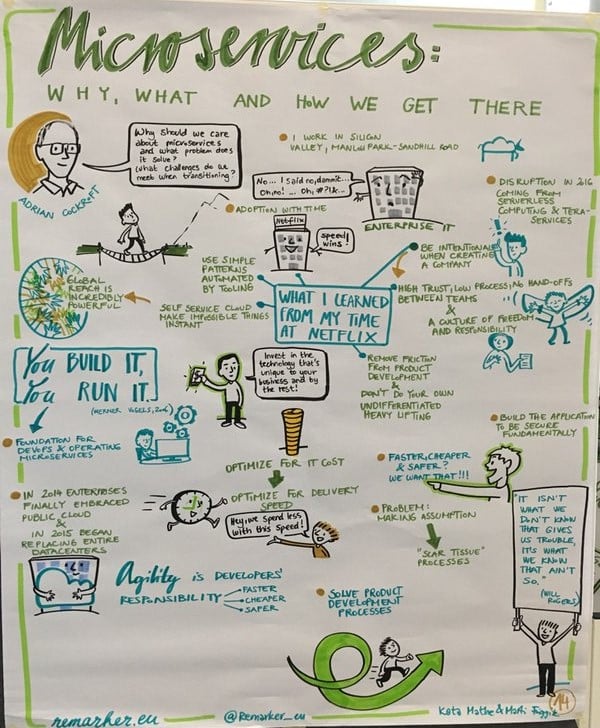 Microservices:
WHY, WHAT AND HOW WE GET THERE
Why should we care
about microservices
and what problem does
it solve?
What challenges do we
meet when transitioning?
ADRIAN COCKROFT
I WORK IN SILICON
VALLEY, MANLOW PARK-SANDHILL ROAD
No... I said no, dammit...
Oh no! ... Oh,
ENTERPRISE IT
DISRUPTION IN 2016
COMING FROM
SERVERLESS
COMPUTING & TERA-
SERVICES
ADOPTION WITH TIME
Netflix
speed
wins!
GLOBAL
REACH IS
INCREDIBLY
POWERFUL
USE SIMPLE
PATTERNS
AUTOMATED
BY TOOLING
SELF SERVICE CLOUD
MAKE IMPOSSIBLE THINGS
INSTANT
WHAT I LEARNED
FROM MY TIME
AT NETFLIX
BE INTENTIONAL
WHEN CREATING
A COMPANY
HIGH TRUST, LOW PROCESS, NO HAND-OFFS
BETWEEN TEAMS
&
A CULTURE OF FREEDOM
AND RESPONSIBILITY
REMOVE FRICTION
FROM PRODUCT
DEVELOPMENT
&
DON'T DO YOUR OWN
UNDIFFERENTIATED
HEAVY LIFTING
You BUILD IT,
You RUN IT.
(WERNER VOGELS, 2006)
FOUNDATION FOR
DEVOPS & OPERATING
MICROSERVICES
Invest in the
technology that's
unique to your
business and by
the rest!
OPTIMIZE FOR IT COST
OPTIMIZE FOR DELIVERY
SPEED
Hey, we spend less
with this speed!
IN 2014 ENTERPRISES
FINALLY EMBRACED
PUBLIC CLOUD
&
IN 2015 BEGAN
REPLACING ENTIRE
DATACENTERS
Agility IS DEVELOPERS'
RESPONSIBILITY
FASTER
CHEAPER
SAFER
BUILD THE APPLICATION
TO BE SECURE
FUNDAMENTALLY
FASTER, CHEAPER
& SAFER?
WE WANT THAT!!!
PROBLEM:
MAKING ASSUMPTION
"SCAR TISSUE"
PROCESSES
"IT ISN'T
WHAT WE
DON'T KNOW
THAT GIVES
US TROUBLE,
IT'S WHAT
WE KNOW
THAT AIN'T
SO."
(WILL
ROGERS)
SOLVE PRODUCT
DEVELOPMENT
PROCESSES
remarker.eu
@Remarker_eu
Kata Máthé & Márti
14